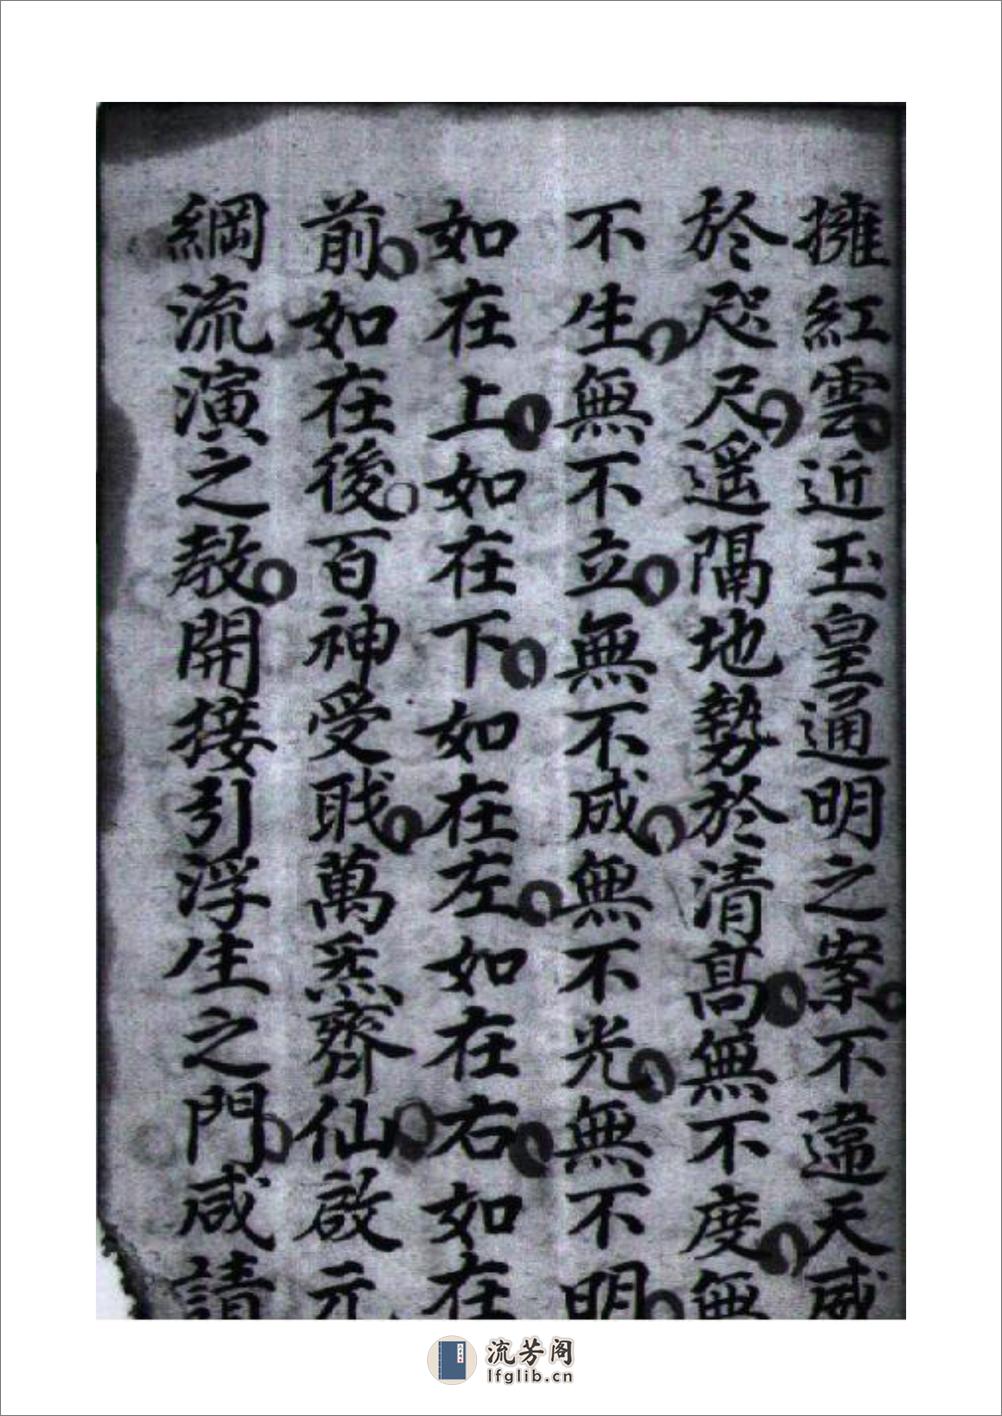 擁紅雲近玉皇通明之案不違天威
於咫尺遥隔地勢於清髙無不度無
不生無不立無不成無不光無不明
如在上如在下如在左如在右如在
前如在後百神受戝萬炁齊仙啟元
綱流演之教開接引浮生之門咸請
流芳阁
lfglib.cn